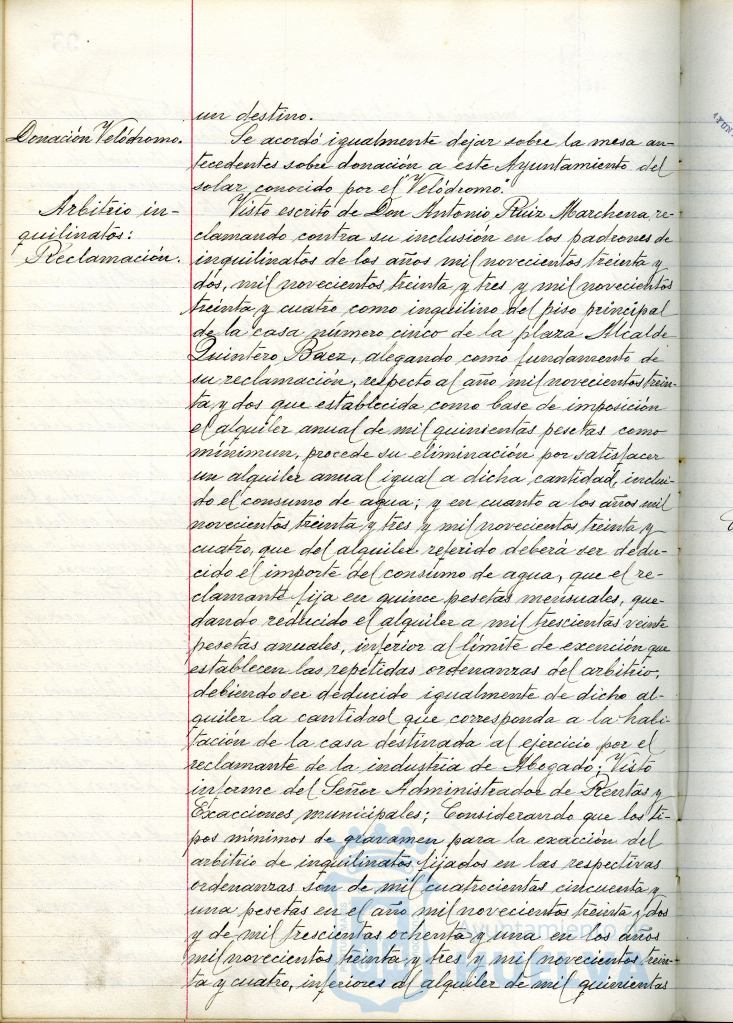 un destino.
Donación Velódromo.
Se acordó igualmente dejar sobre la mesa an-
tecedentes sobre donación a este Ayuntamiento del
solar conocido por el "Velódromo."
Arbitrio in-
quilinatos:
Reclamación.
Visto escrito de Don Antonio Ruiz Marchena re-
clamando contra su inclusión en los padrones de
inquilinatos de los años mil novecientos treinta y
dos, mil novecientos treinta y tres y mil novecientos
treinta y cuatro como inquilino del piso principal
de la casa número cinco de la plaza Alcalde
Quintero Baez, alegando como fundamento de
su reclamación, respecto al año mil novecientos trein-
ta y dos que establecida como base de imposición
el alquiler anual de mil quinientas pesetas como
mínimun, procede su eliminación por satisfacer
un alquiler anual igual a dicha cantidad, inclui-
do el consumo de agua; y en cuanto a los años mil
novecientos treinta y tres y mil novecientos treinta y
cuatro, que del alquiler referido deberá ser dedu-
cido el importe del consumo de agua, que el re-
clamante fija en quince pesetas mensuales, que-
dando reducido el alquiler a mil trescientas veinte
pesetas anuales, inferior al límite de exención que
establecen las repetidas ordenanzas del arbitrio,
debiendo ser deducido igualmente de dicho al-
quiler la cantidad que corresponda a la habi-
tación de la casa destinada al ejercicio por el
reclamante de la industria de Abogado; Visto
informe del Señor Administrador de Rentas y
Exacciones municipales; Considerando que los ti-
pos mínimos de gravamen para la exacción del
arbitrio de inquilinatos fijados en las respectivas
ordenanzas son de mil cuatrocientas cincuenta y
una pesetas en el año mil novecientos treinta y dos
y de mil trescientas ochenta y una en los años
mil novecientos treinta y tres y mil novecientos trein-
ta y cuatro, inferiores al alquiler de mil quinientas
Ayuntamiento de
HUELVA